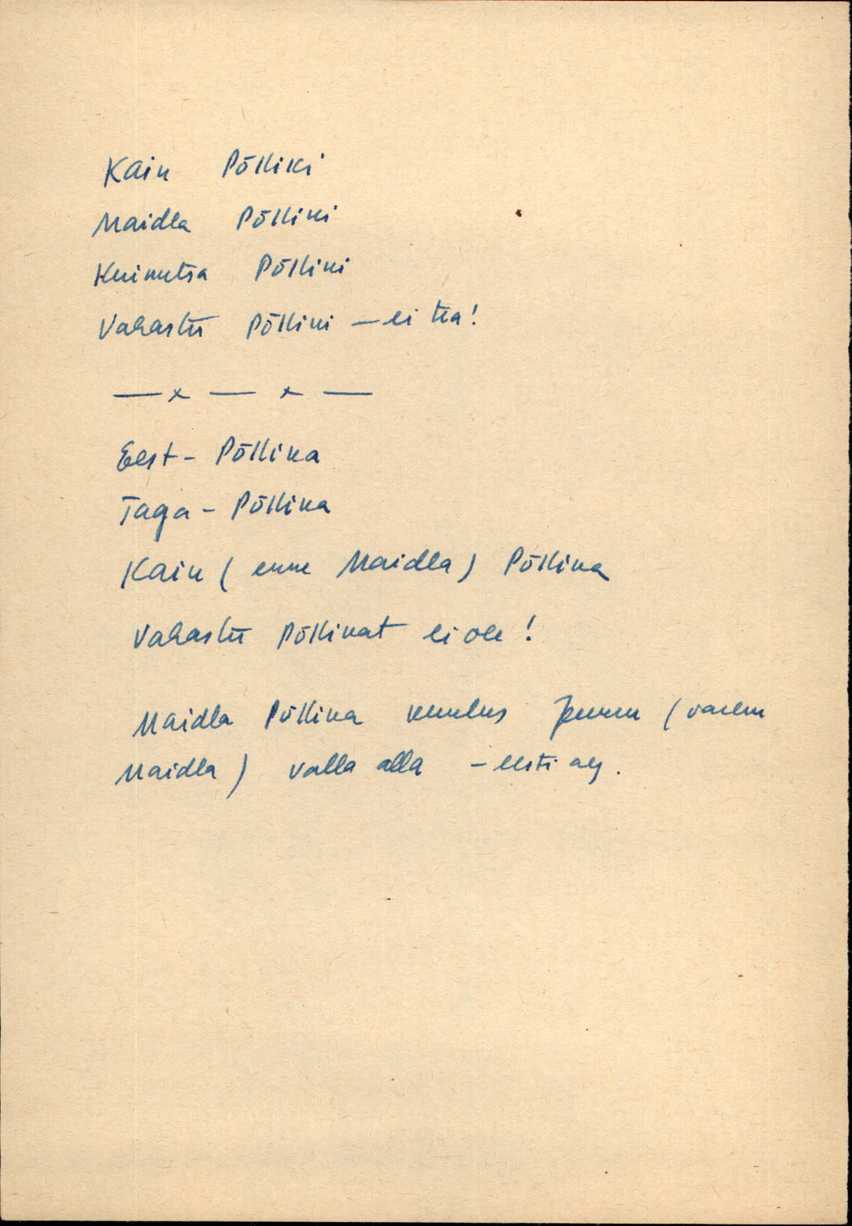 Kaiu Põlliki
Maidla Põllini
Kuimetsa Põllini
Vahastu Põllini – ei tea!
— x — x —
Eest - Põllika
Taga - Põllika
Kaiu ( enne Maidla) Põllika
Vahastu Põllikat ei ole!
Maidla Põllika kuulus Juuru (varem
Maidla) valla alla – eesti aeg.